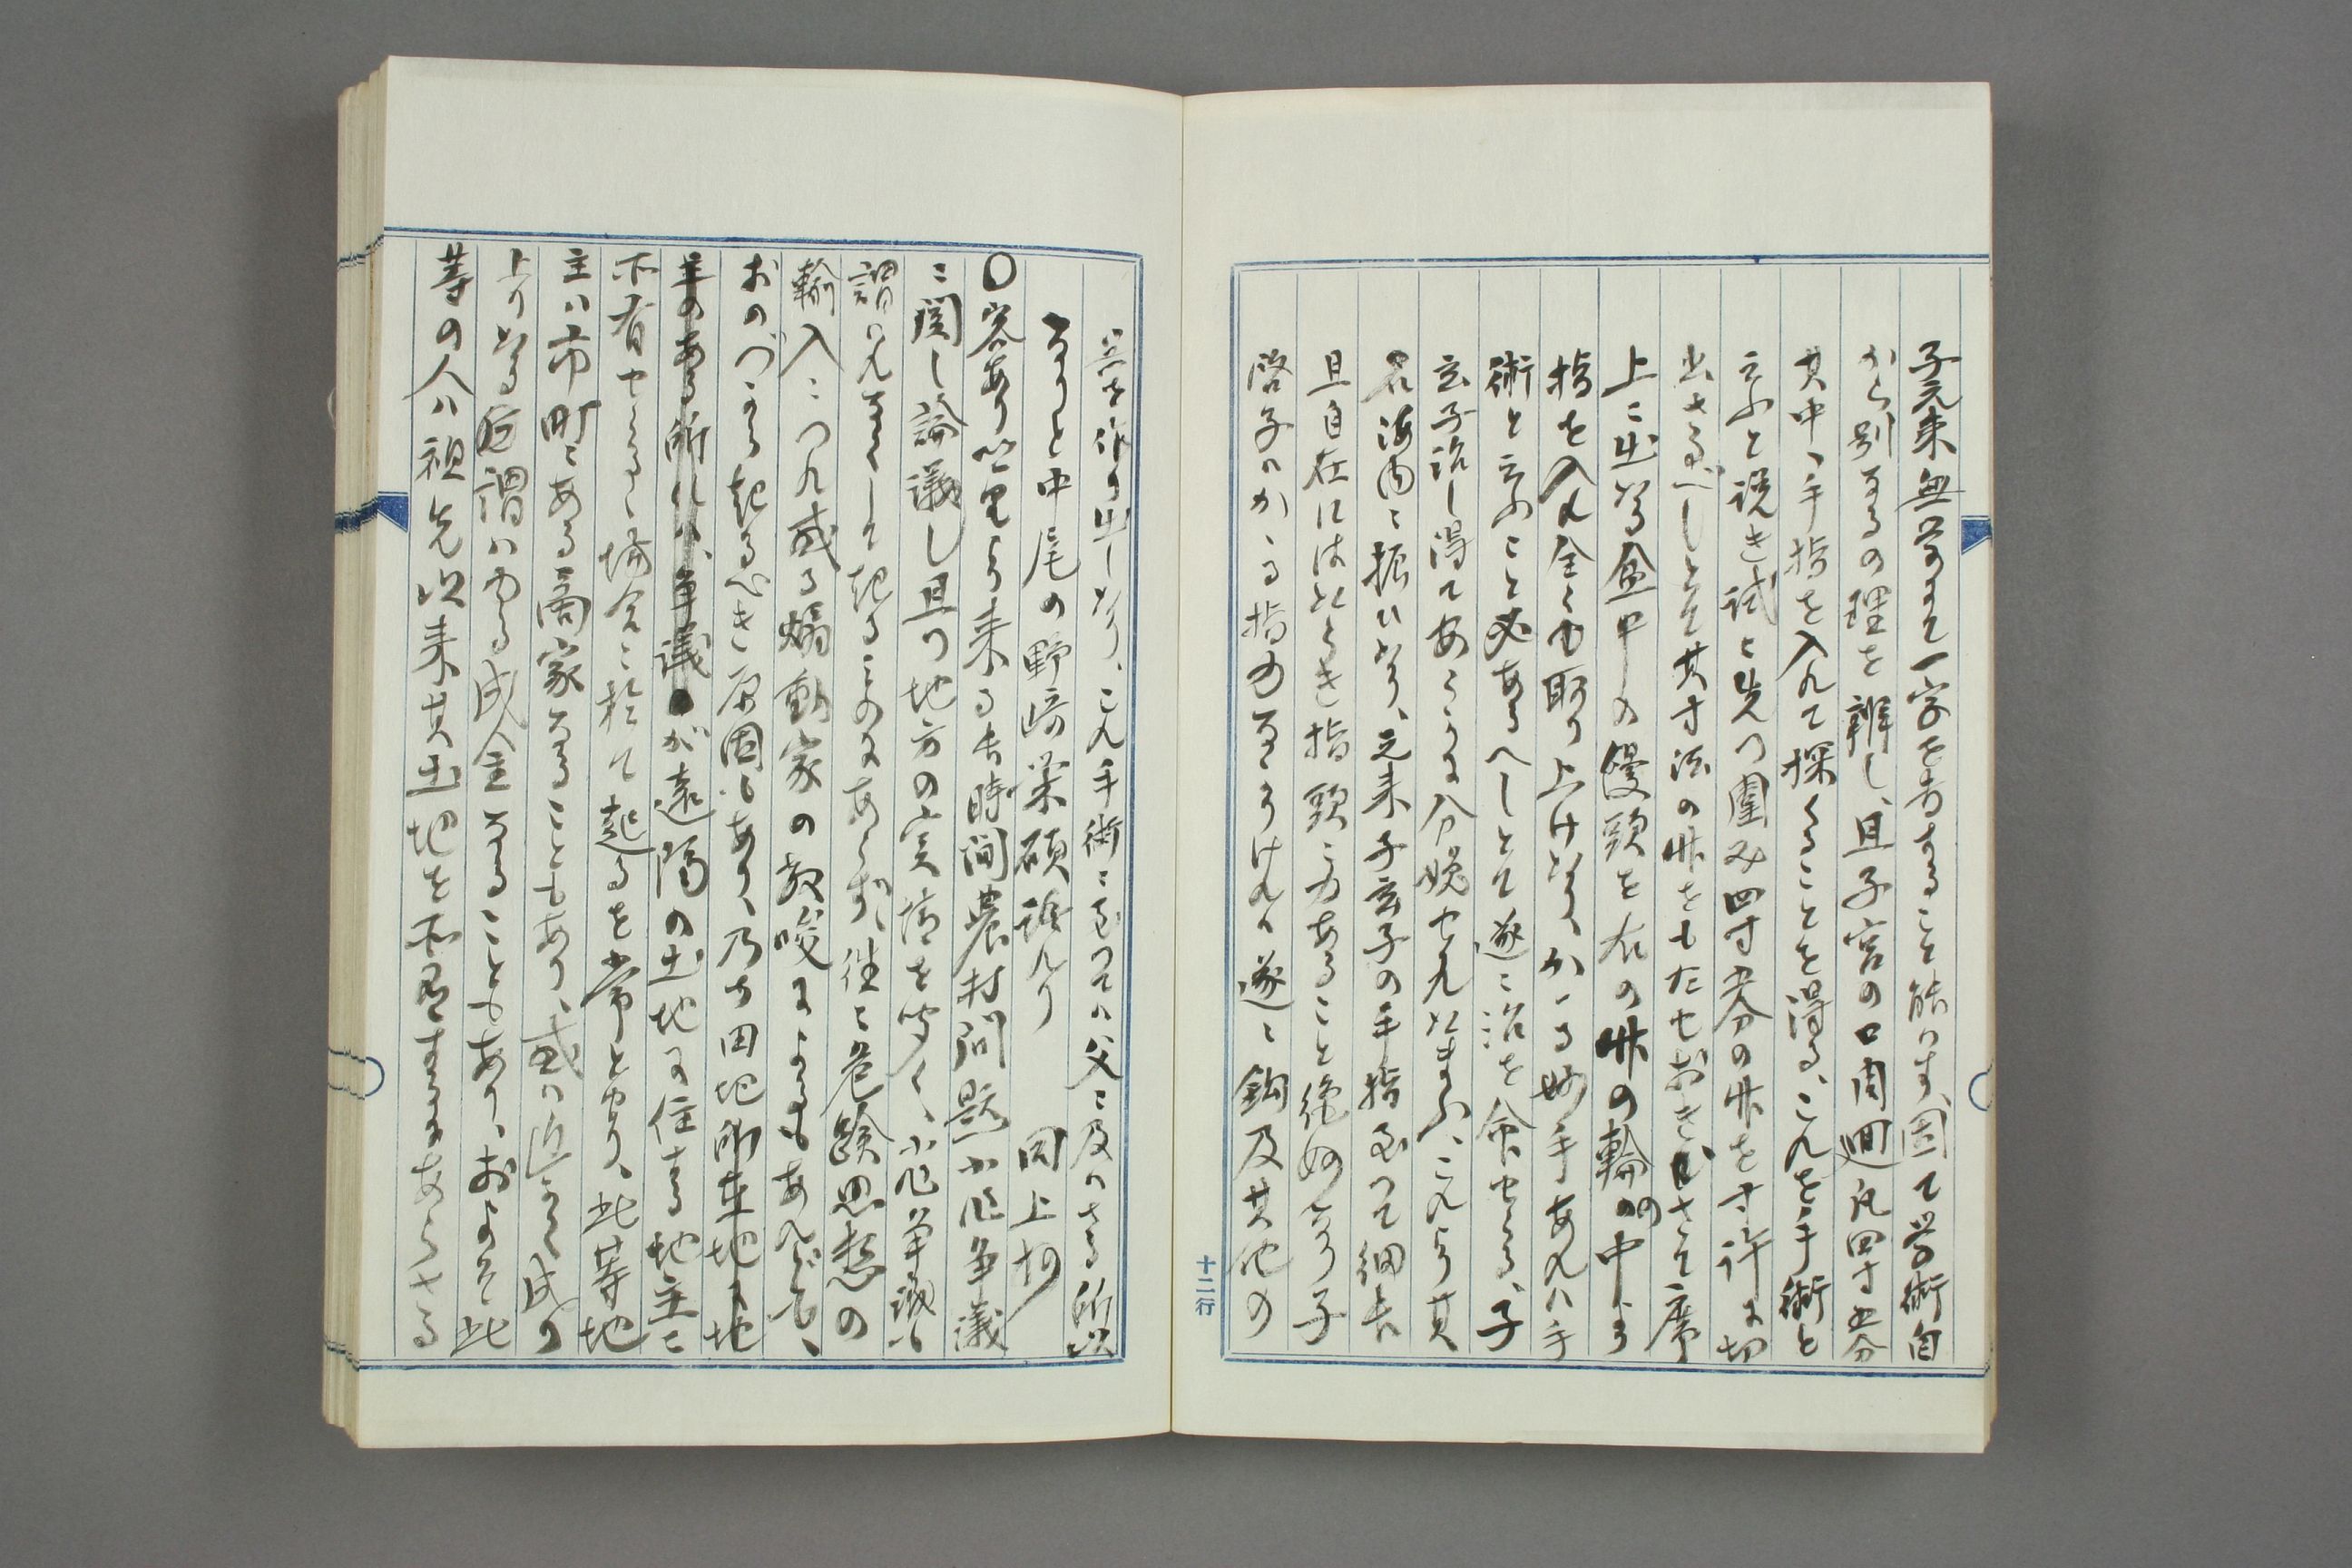 子元来無学にして一字を書すること能はす、固て学術自
から別なるの理を辨し、且子宮の口周囲凡四寸五分
其中へ手指を入れて探くることを得る、これを手術と
云ふと説き試と先つ圍み四寸五分の竹を寸許に切
出さるべしとて其寸法の竹をもたせおき さて席
上ニ出ける盆中の饅頭を右の竹の輪の中より
指を入れ全くも取り上けける、かゝる妙手あれハ手
術と云ふこと必あるへしとて遂ニ治を命せらる、子
玄子治し得てあるうに分娩せられたまふ、これより其
名海内ニ振ひける、元来子玄子の手指至つて細長
且自在にはたらき指頭ニ力あること絶妙なり子
啓子のかゝる指力なかりけれハ遂ニ鈎及其他の
具を作り出しける、これ手術ニ至つてハ父ニ及はさる所以
なりと中尾の野﨑某碩話れり　　同上抄
〇客あり 里より来る 長時間農村問題小作争議
ニ関し論議し且つ地方の実情を聞く、小作争議は
謂はれなくして起るものにあらず、往々危険思想の
輸入ニつれ或る煽動家の教唆によるもあれども、
おのづから起るべき原因もあり、乃ち田地所在地に地
主のある所ハ、争議が遠隔の土地に住する地主ニ
所有せらるゝ場合ニ於て起るを常とせり、此等地
主ハ市町ニある商家なることもあり、或は近くは成り
上りける所謂ハゆる成金なることもあり、およそ此
等の人ハ祖先以来其土地を所有するにあらさる
十二行